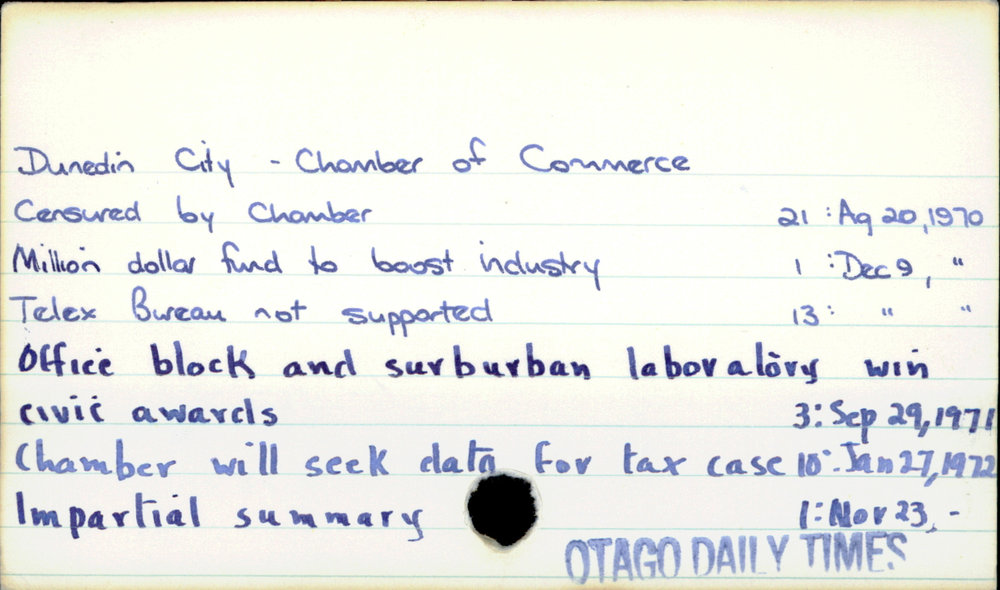 Dunedin City - Chamber of Commerce
Censured by Chamber 21 : Ag 20, 1970
Million dollar fund to boost industry 1 : Dec 9, "
Telex Bureau not supported 13 : " "
Office block and surburban laboralory win
civic awards 3: Sep 29, 1971
Chamber will seek data for tax case 10: Jan 27, 1972
Impartial summary 1: Nov 23, -
OTAGO DAILY TIMES